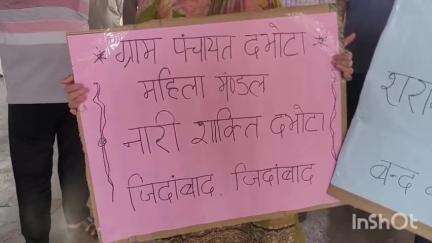 * ग्राम पंचायत दभोटा *
महिला मण्डल
नारी शक्ति दभोटा
जिंदाबाद. जिंदाबाद
शरा
बन्द
InShOt